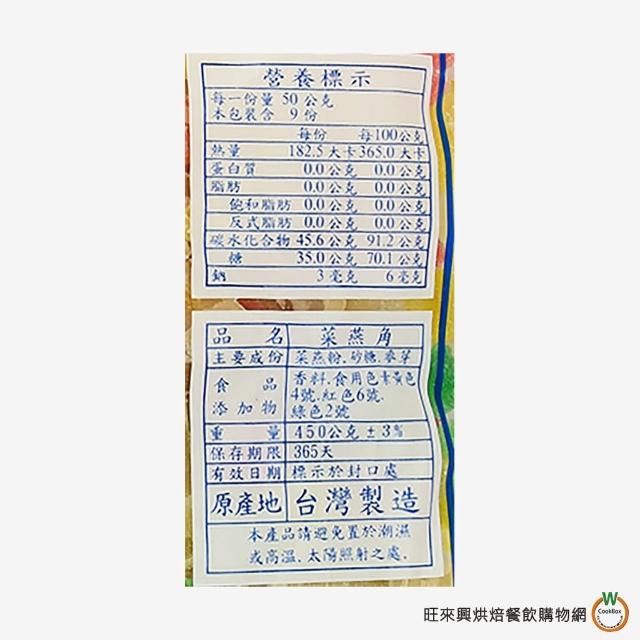 營養標示
每一份量 50 公克
本包裝含 9 份
每份 每100公克
熱量 182.5 大卡 365.0 大卡
蛋白質 0.0 公克 0.0 公克
脂肪 0.0 公克 0.0 公克
飽和脂肪 0.0 公克 0.0 公克
反式脂肪 0.0 公克 0.0 公克
碳水化合物 45.6 公克 91.2 公克
糖 35.0 公克 70.1 公克
鈉 3 毫克 6 毫克
品名 菜燕角
主要成份 菜燕粉.砂糖.麥芽
食品添加物 香料.食用色素黃色
4號.紅色6號.
綠色2號
重量 450公克±3%
保存期限 365天
有效日期 標示於封口處
原產地 台灣製造
本產品請避免置於潮濕
或高溫.太陽照射之處.
W
CookBox
旺來興烘焙餐飲購物網